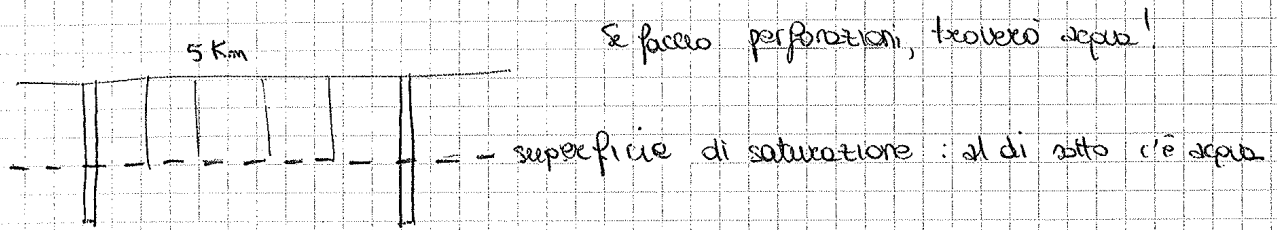 5 Km
Se faccio perforazioni, troverò acqua!
superficie di saturazione : al di sotto c'è acqua